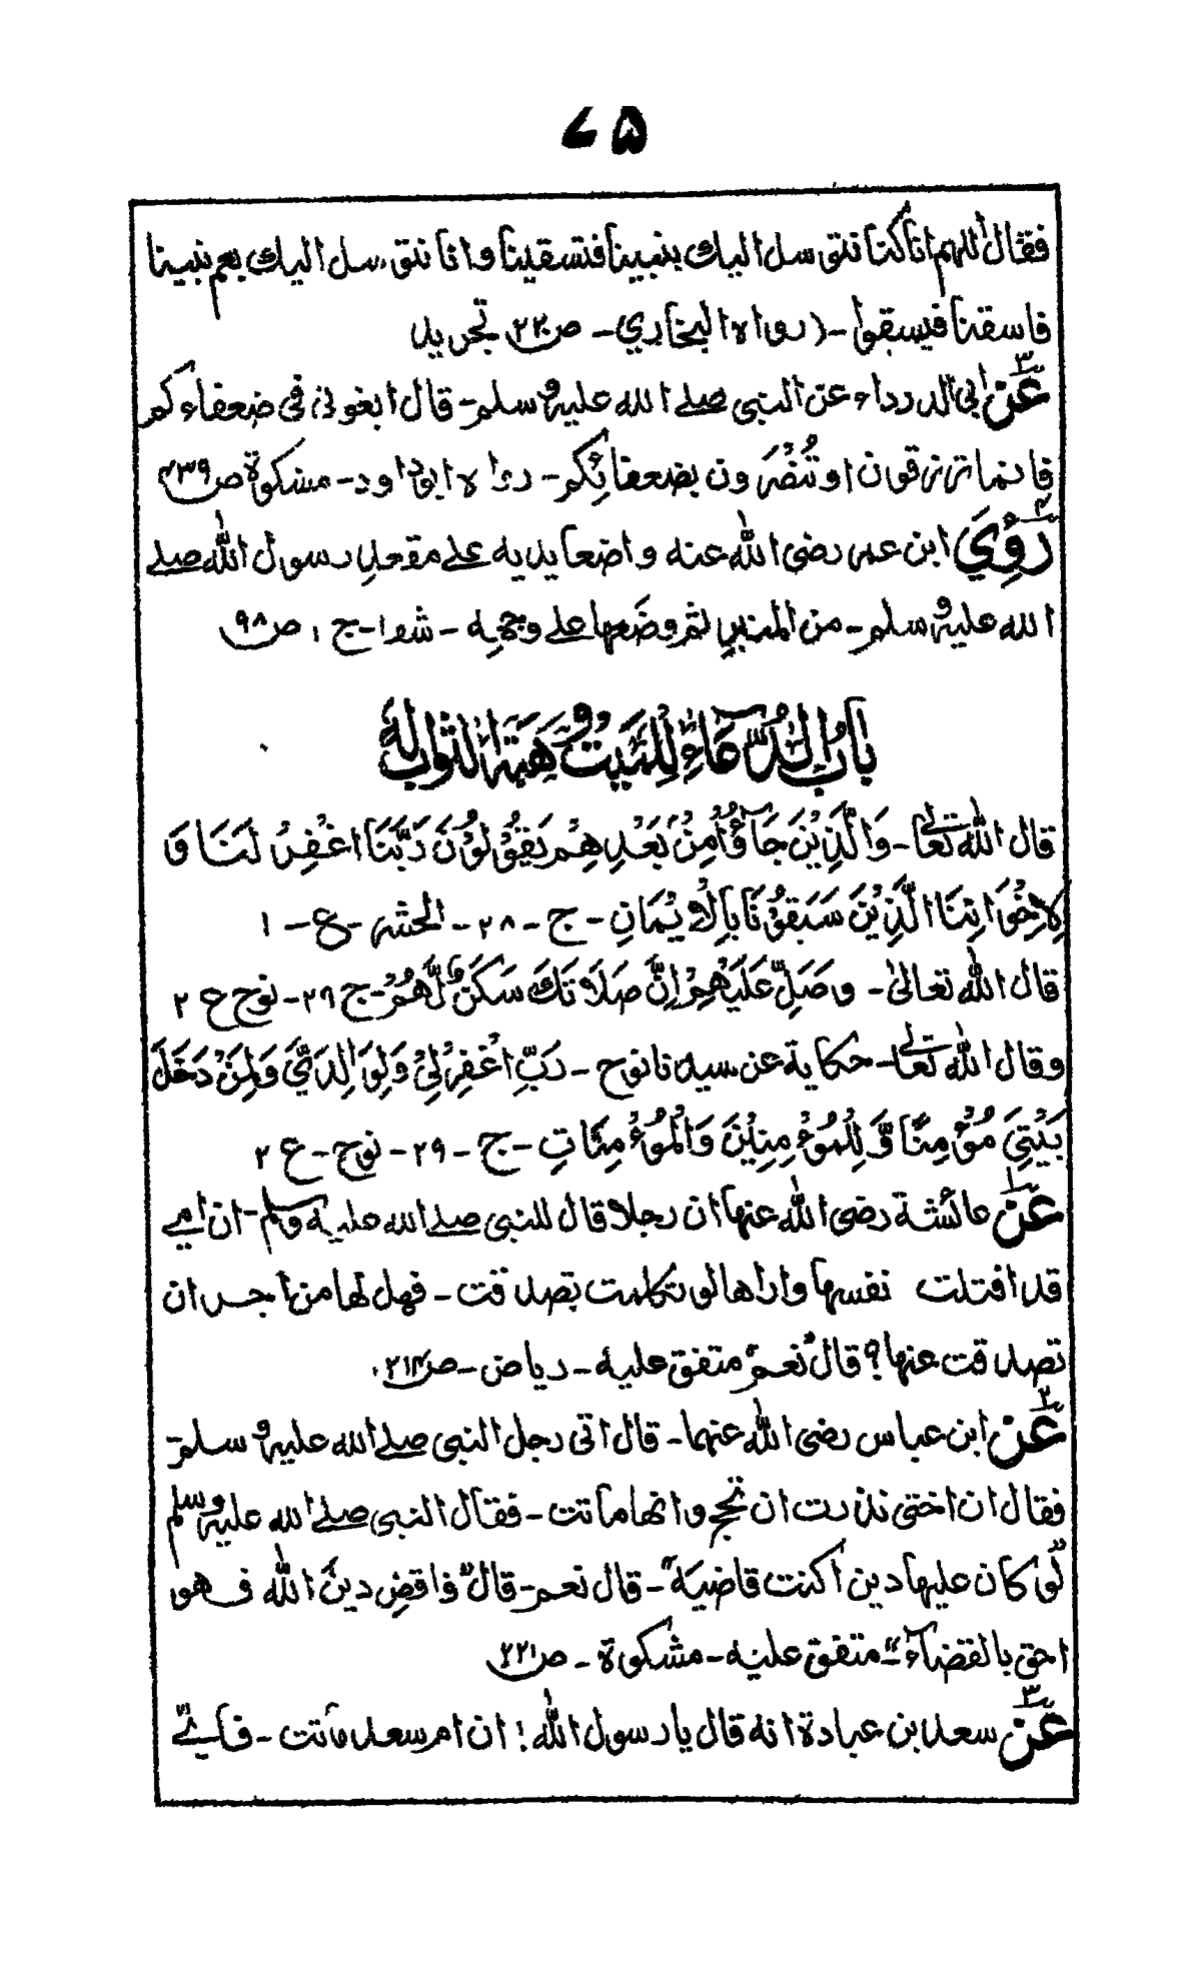 ۷۵
فقال اللهم انا كنا نتوسل اليك بنبينا فتسقينا وانا نتوسل اليك بعم نبينا
فاسقنا فيسقوا - (رواه البخاري - ص۲۲ تجريد
عن۳ ابي الدرداء عن النبي صلے الله عليه وسلم - قال ابغوني في ضعفاءكم
فانما ترزقون او تُنْصَرون بضعفائكم - رواه ابو داود - مشكوة ص۴۳۹
رُوِيَ۴ ابن عمر رضى الله عنه واضعا يديه علے مقعد رسول الله صلے
الله عليه وسلم - من المنبر ثم وضعها علے وجهه - شفا - ج ۱ ص۹۸
بابُ الدُّعاءِ لِلمَيِّتِ وَهِبَةِ الثوابِ لَهُ
قال الله تعالى - وَالَّذِيْنَ جَآؤُا مِنْۢ بَعْدِهِمْ يَقُوْلُوْنَ رَبَّنَا اغْفِرْ لَنَا وَ
لِاِخْوَانِنَا الَّذِيْنَ سَبَقُوْنَا بِالْاِيْمَانِ - ج - ۲۸ - الحشر - ع - ۱
قال الله تعالىٰ - وصَلِّ عَلَيْهِمْ اِنَّ صَلَاتَكَ سَكَنٌ لَّهُمْ - ج ۲۹ - نوح ع ۲
وقال الله تعالى - حكاية عن سيدنا نوح - رَبِّ اغْفِرْلِيْ وَلِوَالِدَيَّ وَلِمَنْ دَخَلَ
بَيْتِيَ مُؤْمِنًا وَّ لِلْمُؤْمِنِيْنَ وَالْمُؤْمِنَاتِ - ج - ۲۹ - نوح - ع ۲
عن۱ عائشة رضى الله عنها ان رجلا قال للنبي صلے الله عليه وسلم - ان امي
قد افتلت نفسها واراها لو تكلمت تصدقت - فهل لها من اجر ان
تصدقت عنها؟ قال "نعم" متفق عليه - رياض - ص۲۱۴
عن۲ ابن عباس رضى الله عنهما - قال اتى رجل النبي صلے الله عليه وسلم -
فقال ان اختى نذرت ان تحج وانها ماتت - فقال النبي صلے الله عليه وسلم
"لو كان عليها دين اكنت قاضيه" - قال نعم - قال "فاقض دين الله فهو
احق بالقضآء" - متفق عليه - مشكوة - ص۲۲۱
عن۳ سعد بن عبادة انه قال يا رسول الله! ان ام سعد ماتت - فايّ